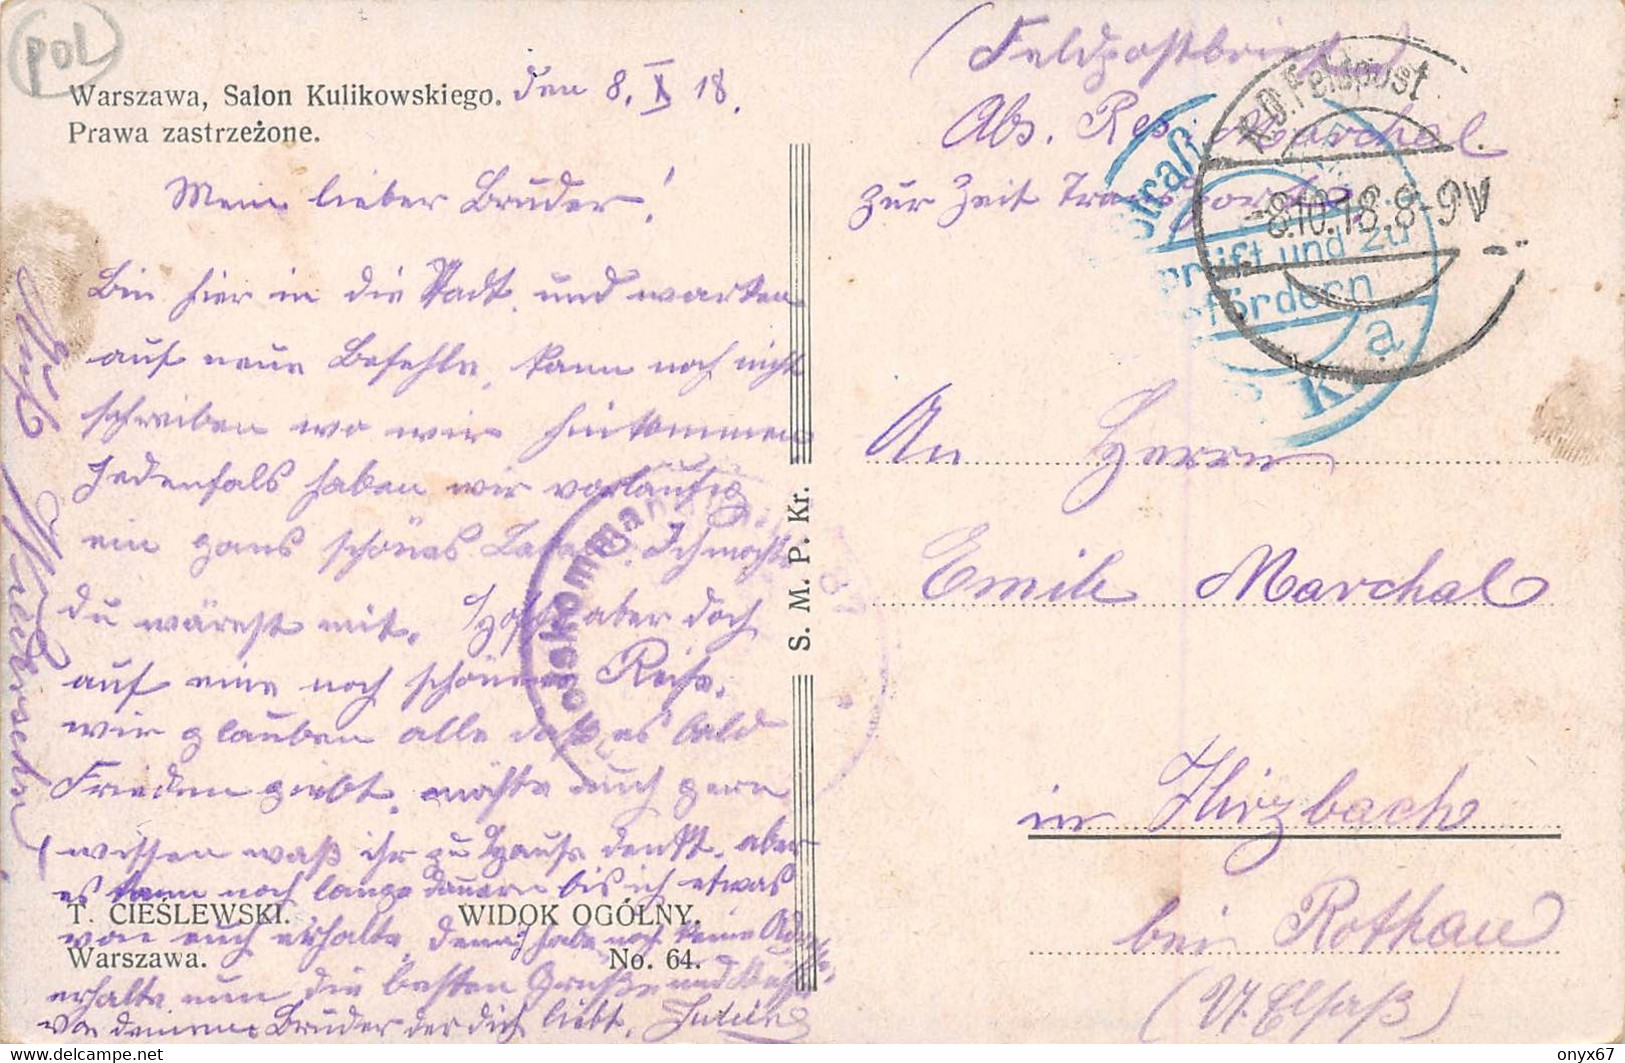 (pol)
Warszawa, Salon Kulikowskiego. den 8. X 18.
Prawa zastrzeżone.
Mein lieber Bruder!
Bin hier in die Stadt und warten
auf neue Befehle, kann noch nicht
schreiben wo wir hinkommen
Jedenfals haben wir vorläufig
ein ganz schönes Leben. Ich möchte
du wärest mit. Hoffe aber doch
auf eine noch schönere Reise.
wir glauben alle daß es bald
Frieden giebt. möchte auch gern
wissen waß ihr zu Hause denkt. aber
es kann noch lange dauern bis ich etwas
von euch erhalte, denn ich habe noch keine
erhalte nun die besten Grüße und Küsse
von deinem Bruder der dich liebt.
Auf Wiedersehen
T. CIEŚLEWSKI. WIDOK OGÓLNY.
Warszawa. No. 64.
S. M. P. Kr.
(Feldpostbrief)
Abs. Res. Marchal
zur Zeit Transport
K.D. Feldpost
-8.10.18. 8-9V
Straß
prüft und zu
befördern
a
K.
An Herrn
Emile Marchal
in Hirzbach
bei Rothau
(U. Elsaß)
onyx67